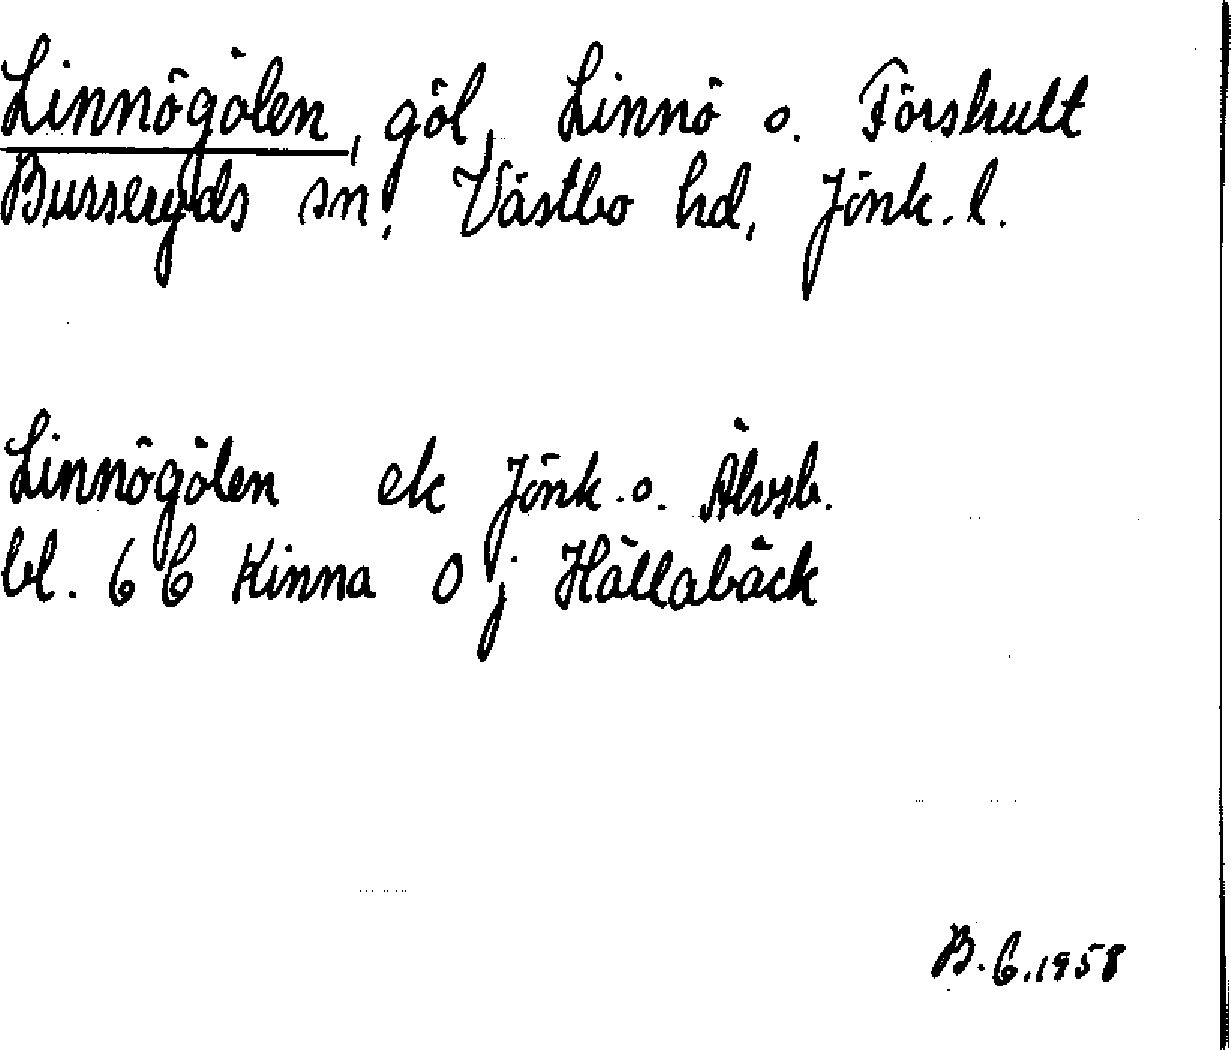 Linnögölen, göl, Linnö o. Förshult
Burseryds sn, Västbo hd, Jönk. l.
Linnögölen ek Jönk. o. Älvsb.
bl. 6 C Kinna 0 j Hällabäck
B. C. 1958